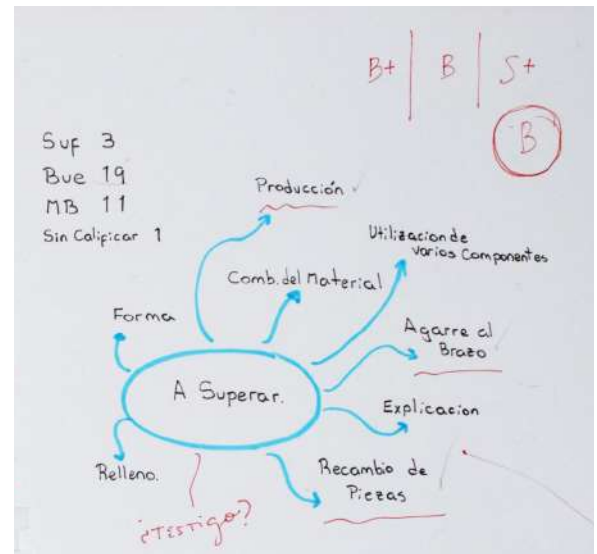 B+ | B | S+
B
Suf 3
Bue 19
MB 11
Sin Calificar 1
Producción
Utilizacion de
varios Componentes
Comb. del Material
Forma
Agarre al
Brazo
A Superar.
Explicacion
Relleno.
Recambio de
Piezas
¿Testigo?